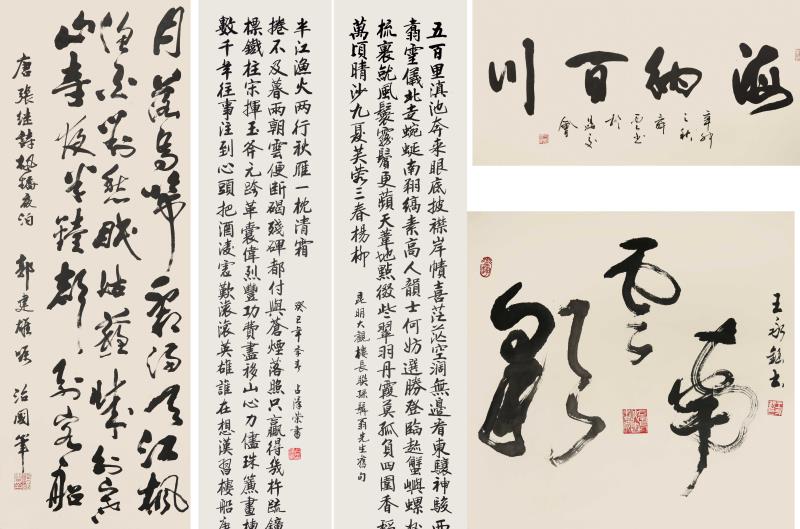 月落烏啼霜滿天江楓
漁火對愁眠姑蘇城外寒
山寺夜半鐘聲到客船
唐張继詩楓橋夜泊 郭建雄嘱 治國筆
五百里滇池奔来眼底披襟岸幘喜茫茫空濶無邊看東驤神駿西
翥靈儀北走蜿蜒南翔縞素高人韻士何妨選勝登臨趁蟹嶼螺
梳裹就風鬟霧鬢更蘋天葦地點綴些翠羽丹霞莫孤負四圍香稻
萬頃晴沙九夏芙蓉三春楊柳
昆明大觀樓長聯孫髯翁先生舊句
數千年往事注到心頭把酒凌虛歎滾滾英雄誰在想漢習樓船唐
標鐵柱宋揮玉斧元跨革囊偉烈豐功費盡移山心力儘珠簾畫棟
捲不及暮雨朝雲便斷碣殘碑都付與蒼煙落照只贏得幾杵疏鐘
半江漁火两行秋雁一枕清霜
癸巳年冬月 占澤榮書
海納百川
辛卯之秋
彩云南
王永